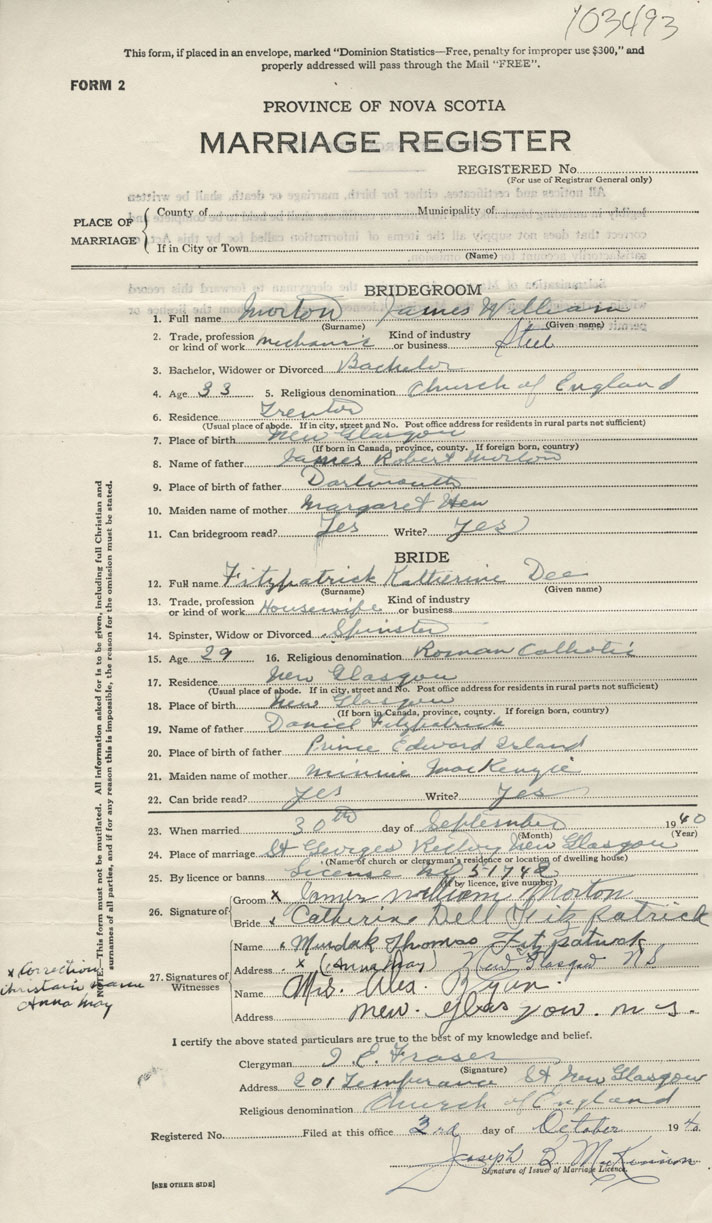 103493
This form, if placed in an envelope, marked "Dominion Statistics—Free, penalty for improper use $300," and
properly addressed will pass through the Mail "FREE".
FORM 2
PROVINCE OF NOVA SCOTIA
MARRIAGE REGISTER
REGISTERED No.
(For use of Registrar General only)
PLACE OF MARRIAGE
County of Municipality of
If in City or Town
(Name)
BRIDEGROOM
1. Full name Morton James William
(Surname) (Given name)
2. Trade, profession or kind of work Mechanic Kind of industry or business Steel
3. Bachelor, Widower or Divorced Bachelor
4. Age 33 5. Religious denomination Church of England
6. Residence Trenton
(Usual place of abode. If in city, street and No. Post office address for residents in rural parts not sufficient)
7. Place of birth New Glasgow
(If born in Canada, province, county. If foreign born, country)
8. Name of father James Robert Morton
9. Place of birth of father Dartmouth
10. Maiden name of mother Margaret
11. Can bridegroom read? Yes Write? Yes
BRIDE
12. Full name Fitzpatrick Katherine Dee
(Surname) (Given name)
13. Trade, profession or kind of work Housewife Kind of industry or business
14. Spinster, Widow or Divorced Spinster
15. Age 29 16. Religious denomination Roman Catholic
17. Residence New Glasgow
(Usual place of abode. If in city, street and No. Post office address for residents in rural parts not sufficient)
18. Place of birth New Glasgow
(If born in Canada, province, county. If foreign born, country)
19. Name of father Daniel Fitzpatrick
20. Place of birth of father Prince Edward Island
21. Maiden name of mother Minnie MacKenzie
22. Can bride read? Yes Write? Yes
23. When married 30th day of September 1940
(Month) (Year)
24. Place of marriage St Georges Rectory New Glasgow
(Name of church or clergyman's residence or location of dwelling house)
25. By licence or banns License No 51742
(If by licence, give number)
26. Signature of
Groom x James William Morton
Bride x Catherine Dell Fitzpatrick
27. Signatures of Witnesses
Name x Murdock Thomas Fitzpatrick
Address x (Anna May) New Glasgow N S
Name Mrs. Alex. Ryan.
Address New. Glasgow. N. S.
x Correction
Christain name
Anna May
NOTE.—This form must not be mutilated. All information asked for is to be given, including full Christian and
surnames of all parties, and if for any reason this is impossible, the reason for the omission must be stated.
I certify the above stated particulars are true to the best of my knowledge and belief.
Clergyman Fraser
(Signature)
Address 201 Temperance St New Glasgow
Religious denomination Church of England
Registered No. Filed at this office 3rd day of October 1940
Joseph B McKinnon
Signature of Issuer of Marriage Licence.
[SEE OTHER SIDE]